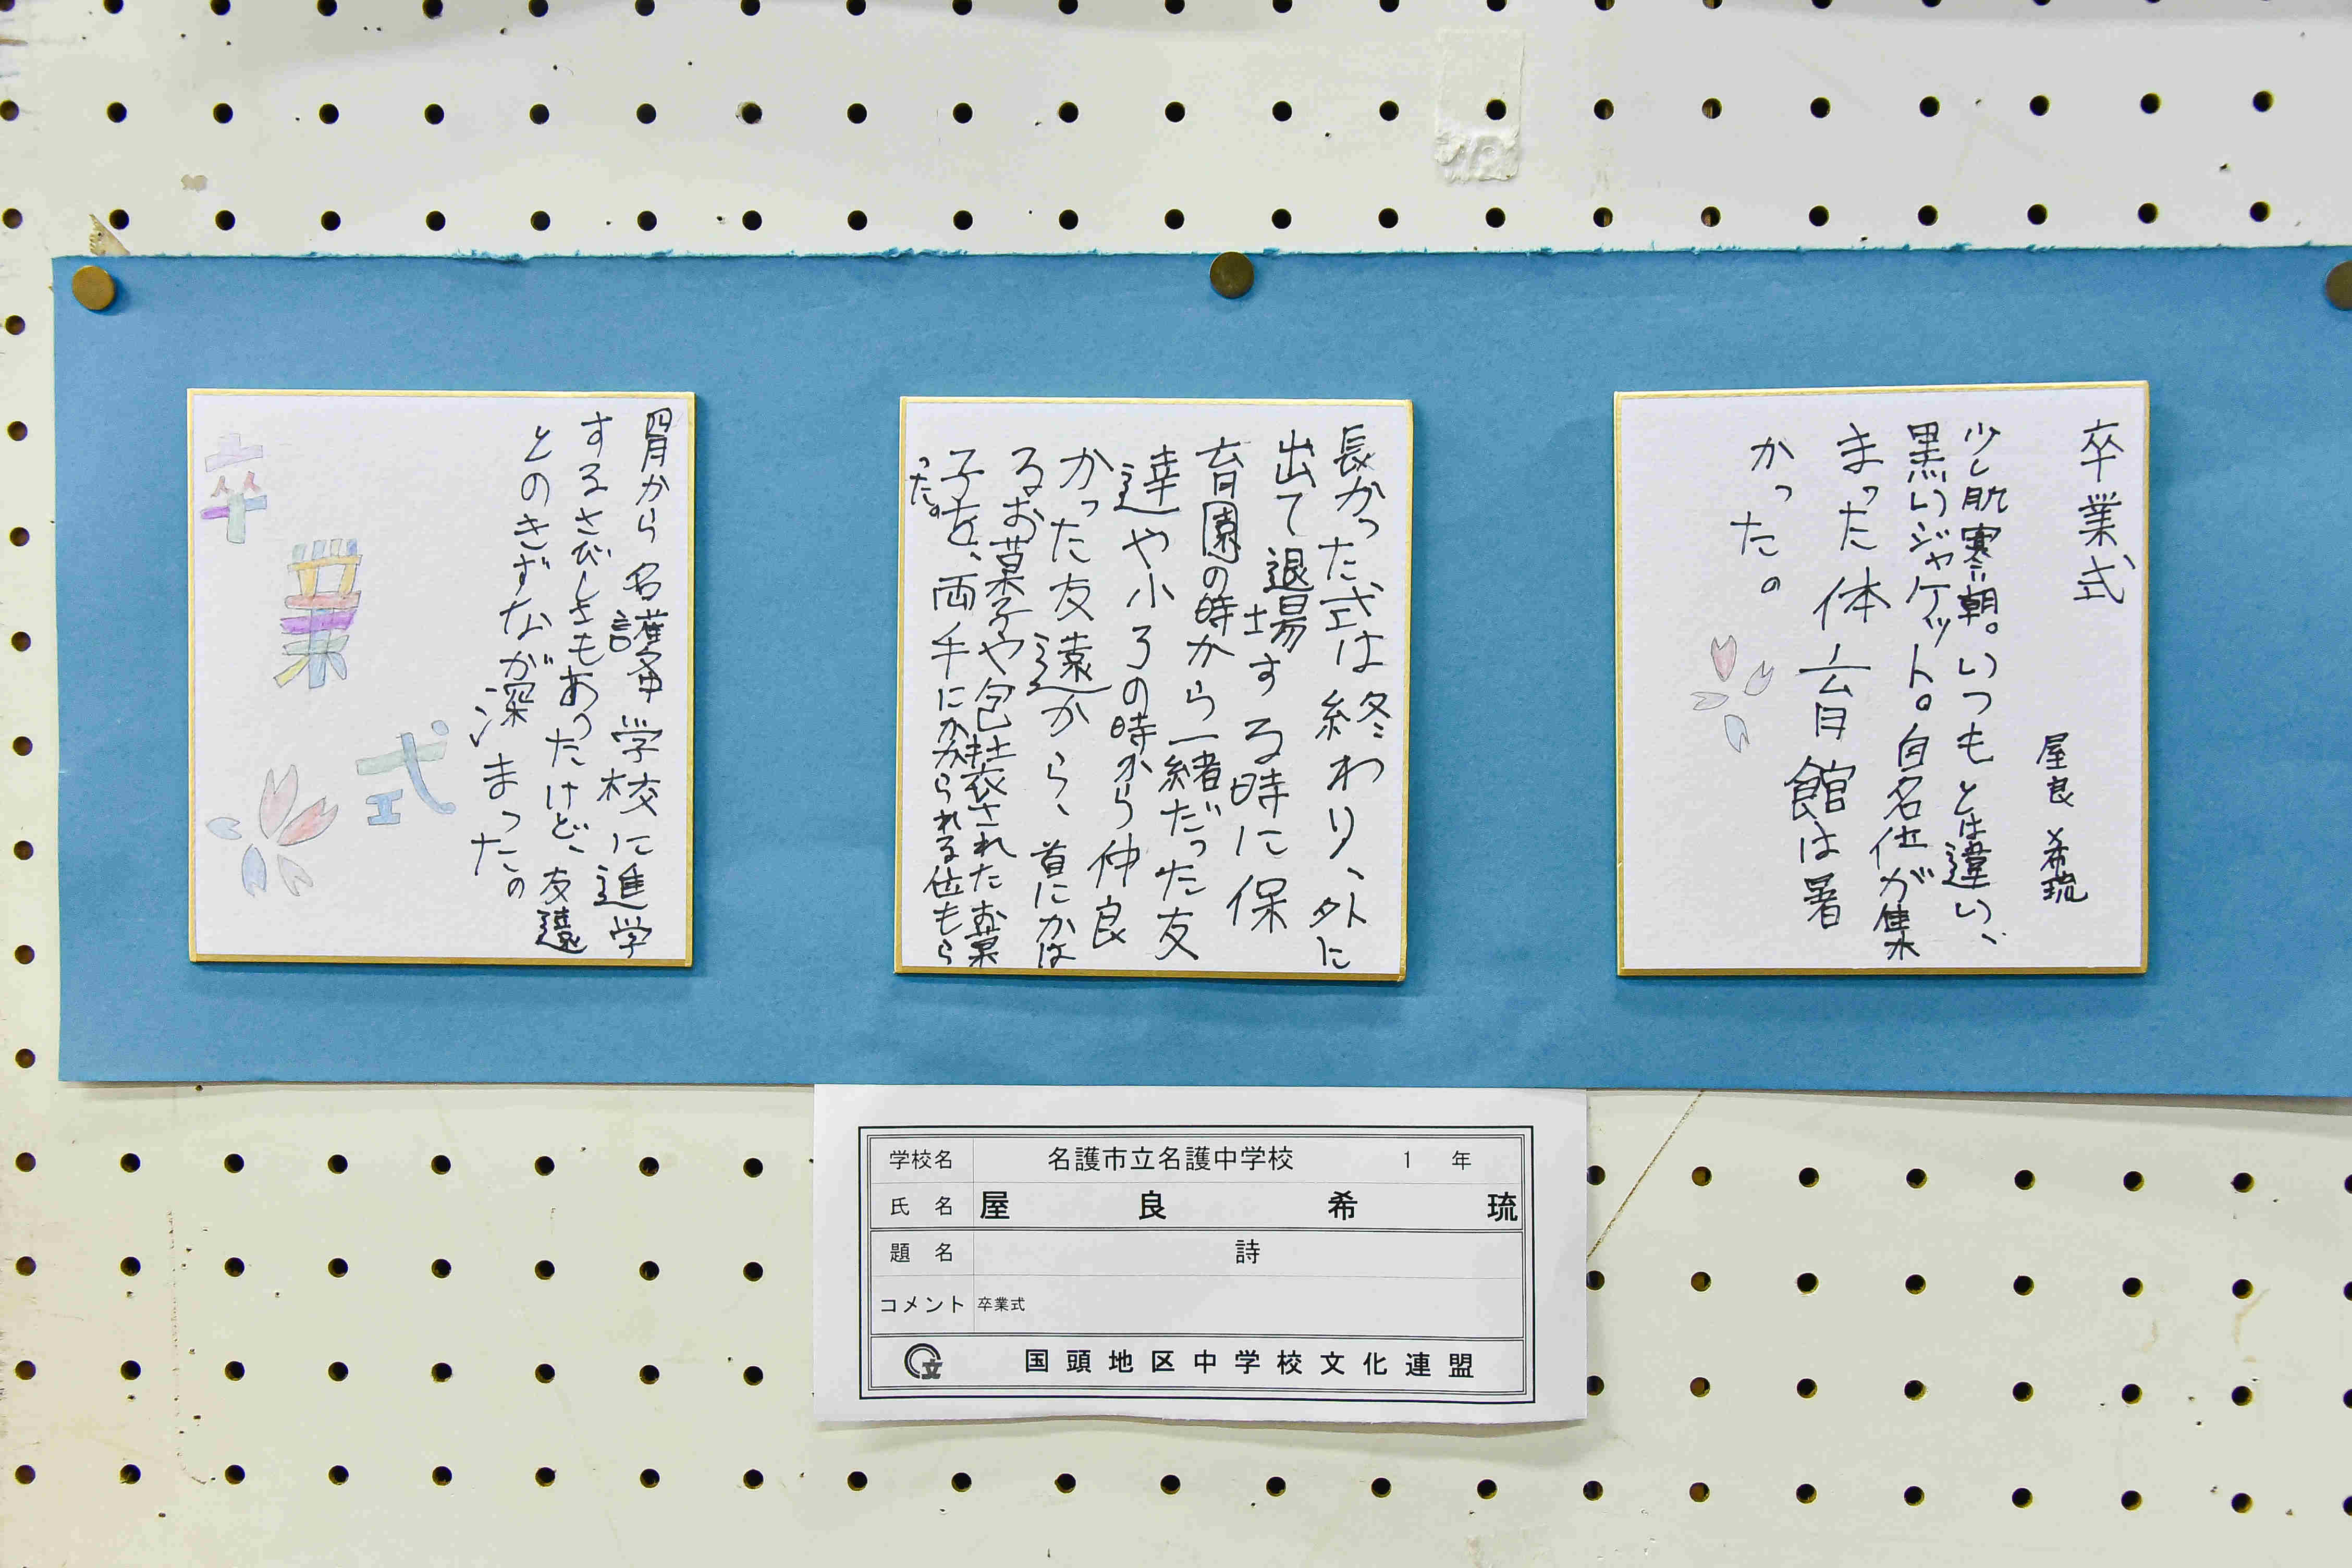 卒業式
屋良 希琉
少し肌寒い朝。いつもとは違い、
黒いジャケット。百名位が集
まった体育館は暑
かった。
長かった式は終わり、外に
出て退場する時に保
育園の時から一緒だった友
達や小3の時から仲良
かった友達から、首にかけ
るお菓子や包装されたお菓
子を、両手にかかえられる位もら
った。
四月から名護中学校に進学
するさびしさもあったけど、友達
とのきずなが深まった。
卒業式
学校名 名護市立名護中学校 1 年
氏 名 屋良希琉
題 名 詩
コメント 卒業式
国頭地区中学校文化連盟